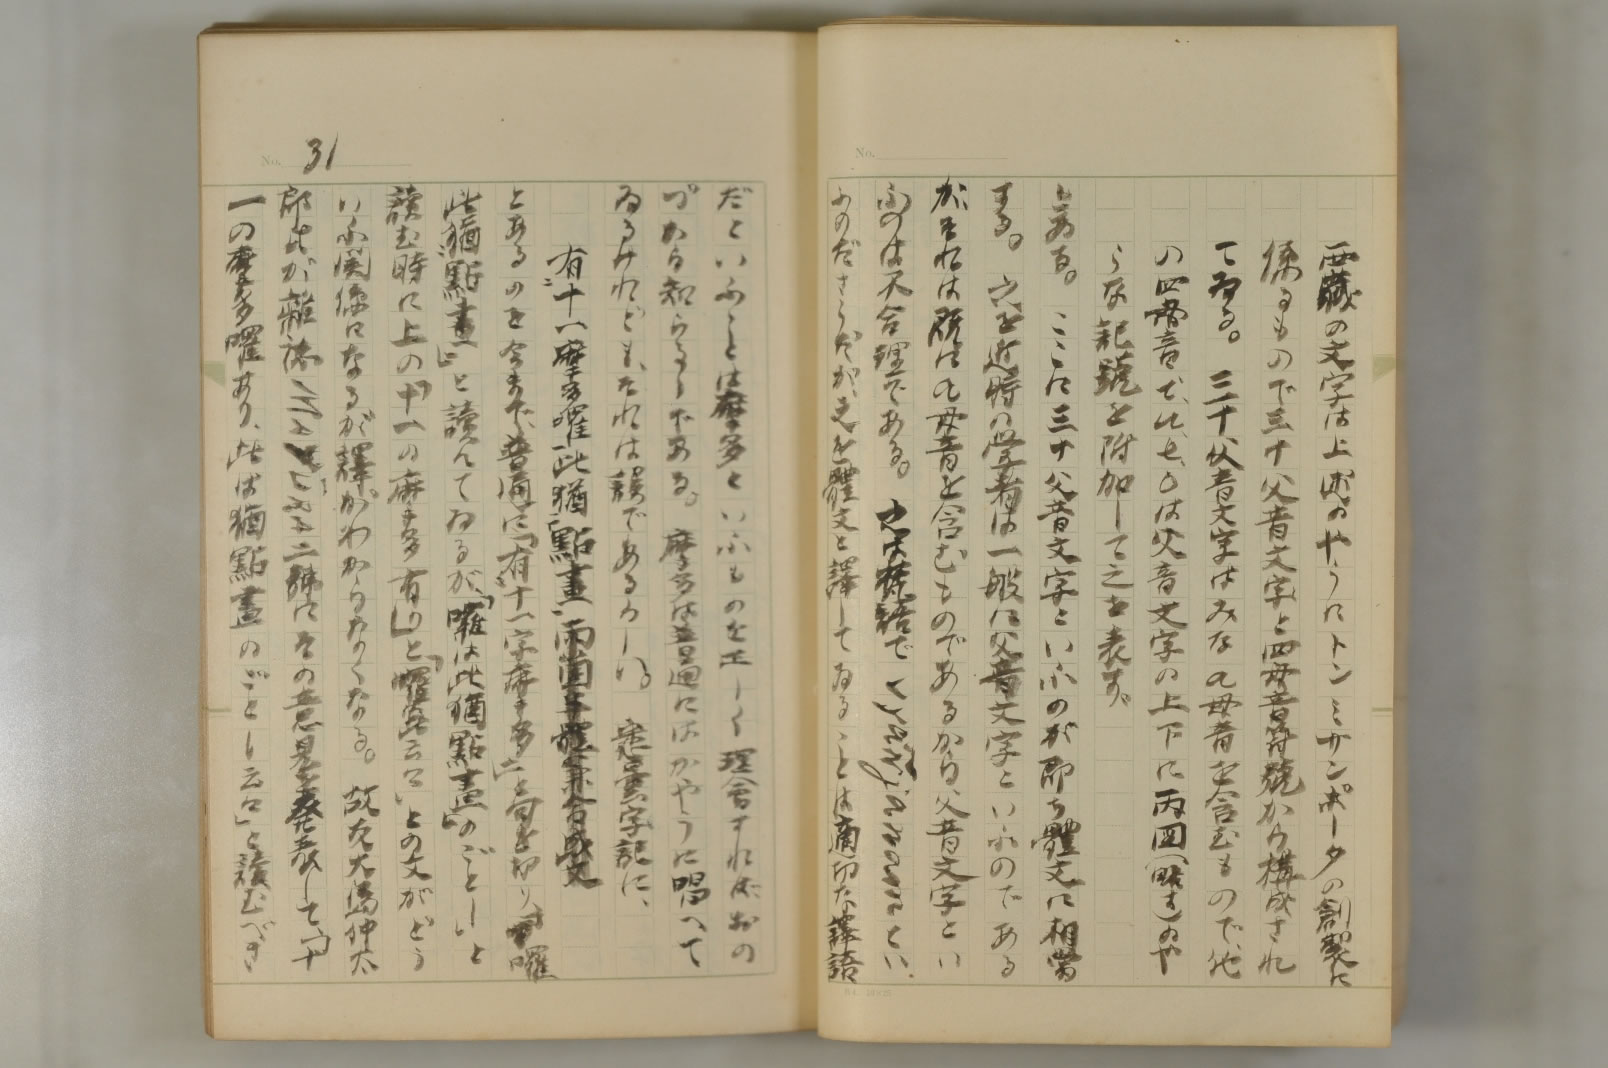 No.
西藏の文字は上述のやうにトンミサンポータの創製に
係るもので三十父音文字と四母音符號から構成され
てゐる。三十父音文字はみなａ母音を含むもので、他
の四母音 は父音文字の上下に丙図(略す)のや
うな記號を附加して之を表す。
とある。ここに三十父音文字といふのが即ち體文に相當
する。 近時の学者は一般に父音文字といふのである
がそれは既にａ母音を含むものであるから父音文字とい
ふのは不合理である。 は梵語で とい
ふのださうだが、之を體文と譯してゐることは適切な譯語
B4. 10×25
No. 31
だといふことは摩多といふものを正しく理會すればおの
づから知らるゝである。摩多は普通にはかやうに唱へて
ゐるけれども、それは誤であるらしい。悉曇字記に、
有十一摩多囉此猶點畫 兩箇半體兼合成文
とあるのを今まで普通に「有十一字摩多」と句を切り、「囉
此猶點畫」と讀んでゐるが、「囉は此猶點畫」のごとしと
讀む時に上の「十一の摩多有り」と「囉 云々」との文がどう
いふ関係になるか譯がわからなくなる。故友大島仲太
郎 が雑誌 二號にその意見を発表して、「十
一の摩多囉あり、此は猶點畫のごとし云々」と讀むべき